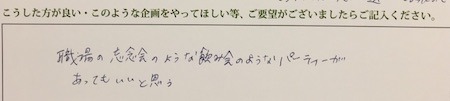 こうした方が良い・このような企画をやってほしい等、ご要望がございましたらご記入ください。
職場の忘念会のような飲み会のようなパーティーが
あってもいいと思う